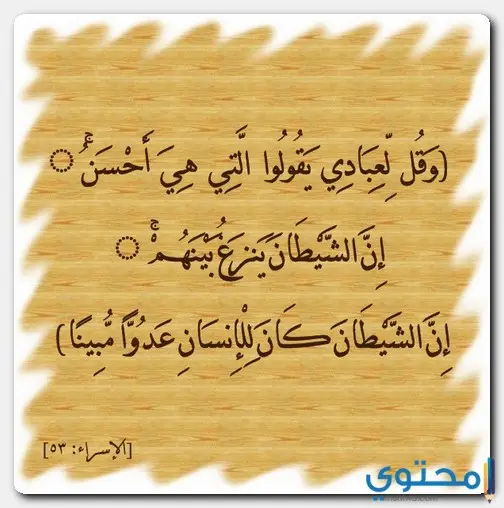 (وَقُل لِّعِبَادِي يَقُولُوا الَّتِي هِيَ أَحْسَنُ ۚ ۝
إِنَّ الشَّيْطَانَ يَنزَغُ بَيْنَهُمْ ۚ ۝
إِنَّ الشَّيْطَانَ كَانَ لِلْإِنسَانِ عَدُوًّا مُّبِينًا)
[الإسراء: ٥٣]
محتوي